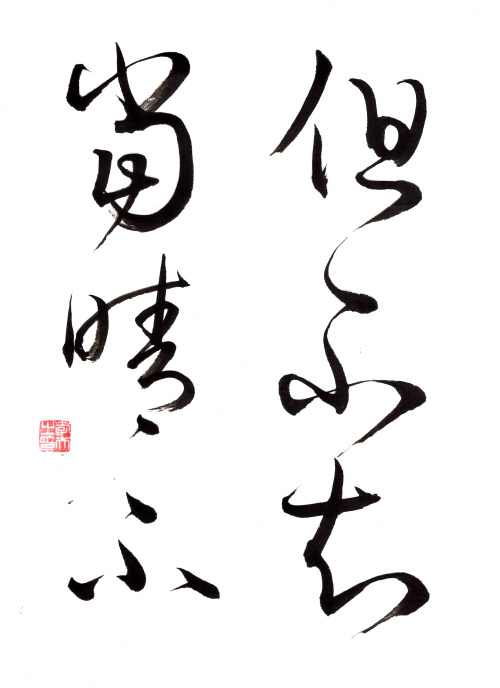 但不知
當晴不